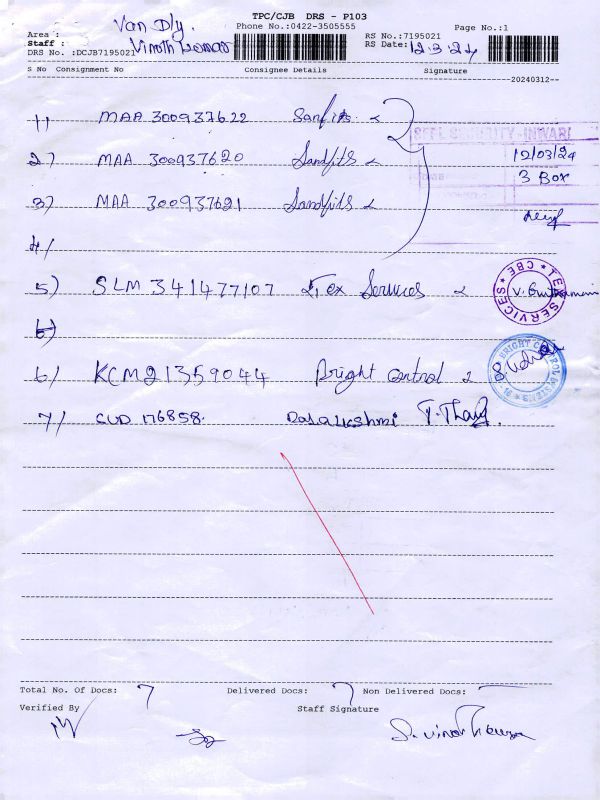 TPC/CJB DRS - P103
Van Dly.
Phone No.:0422-3505555 Page No.:1
Area :
Staff : Vinoth Kumar
RS No.:7195021
DRS No. :DCJB7195021 RS Date: 12.3.24
S No Consignment No Consignee Details Signature
20240312
1) MAA 300937622 Sanfits
SECURITY - INWARD
2) MAA 300937620 Sandfits 12/03/24
3 Box
3) MAA 300937621 Sandfits
4)
5) SLM 341477107 Tex Services
TEX SERVICES * CBE *
6)
6) KCM21359044 Bright Control
BRIGHT CONTROL SYSTEMS
7) CUD 176858. Rajalakshmi T. Thang
Total No. Of Docs: 7 Delivered Docs: 7 Non Delivered Docs: —
Verified By Staff Signature
S. Vinoth Kumar